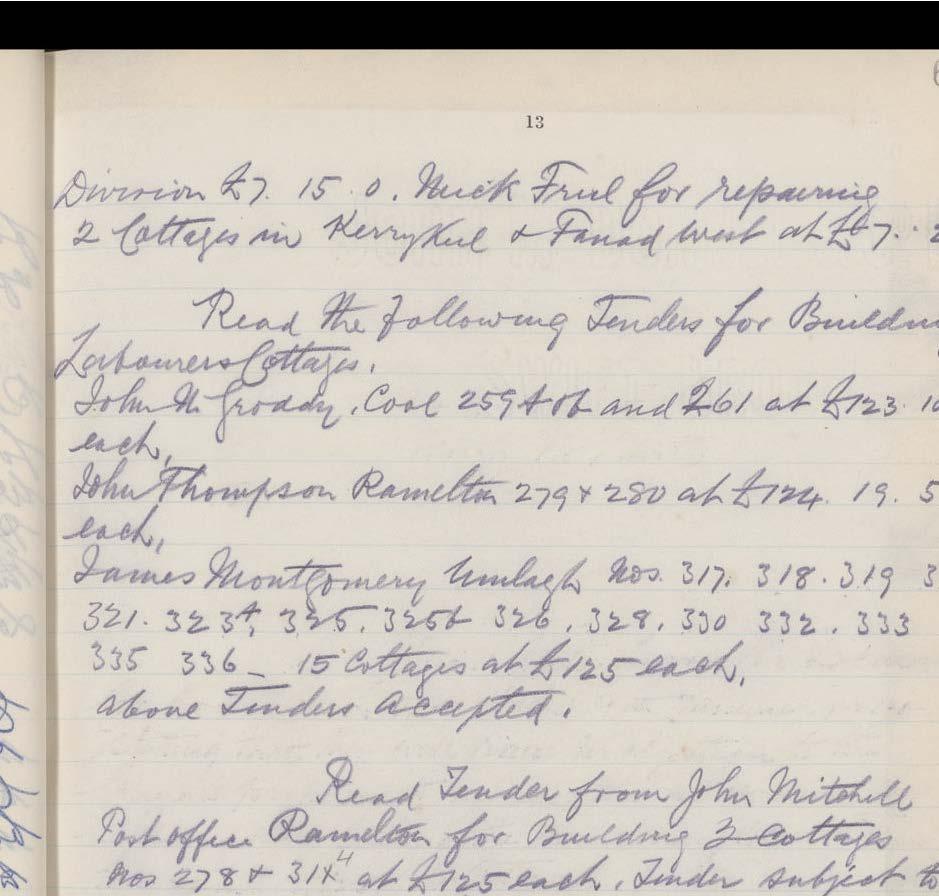 13
Division £7. 15. 0. Mick Friel for repairing
2 Cottages in Kerrykeel & Fanad West at £7.
Read the following Tenders for Buildin
Labourers Cottages.
John McGroddy, Cool 259 & 06 and 261 at £123. 10
each,
John Thompson Ramelton 279 & 280 at £124. 19. 5
each,
James Montgomery Umlagh Nos. 317. 318. 319 3
321. 323A, 325. 325b 326. 328. 330 332. 333
335 336 _ 15 Cottages at £125 each,
above Tenders Accepted.
Read Tender from John Mitchell
Post office Ramelton for Building 2 Cottages
Nos 278 & 314 at £125 each. Tender subject to